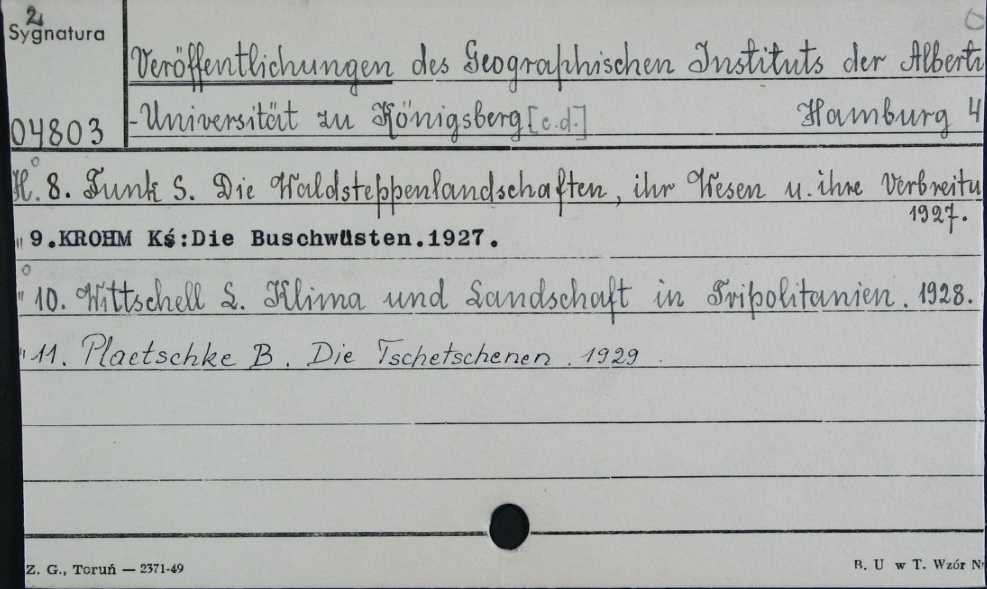 2
Sygnatura
Veröffentlichungen des Geographischen Instituts der Alberti
04803
-Universität zu Königsberg [c.d.] Hamburg 4
H. 8. Funk S. Die Waldsteppenlandschaften, ihr Wesen u. ihre Verbreitu
1927.
" 9.KROHM Kś:Die Buschwüsten.1927.
" 10. Wittschell L. Klima und Landschaft in Tripolitanien. 1928.
" 11. Plaetschke B. Die Tschetschenen. 1929.
Z. G., Toruń — 2371-49
B. U w T. Wzór Nr